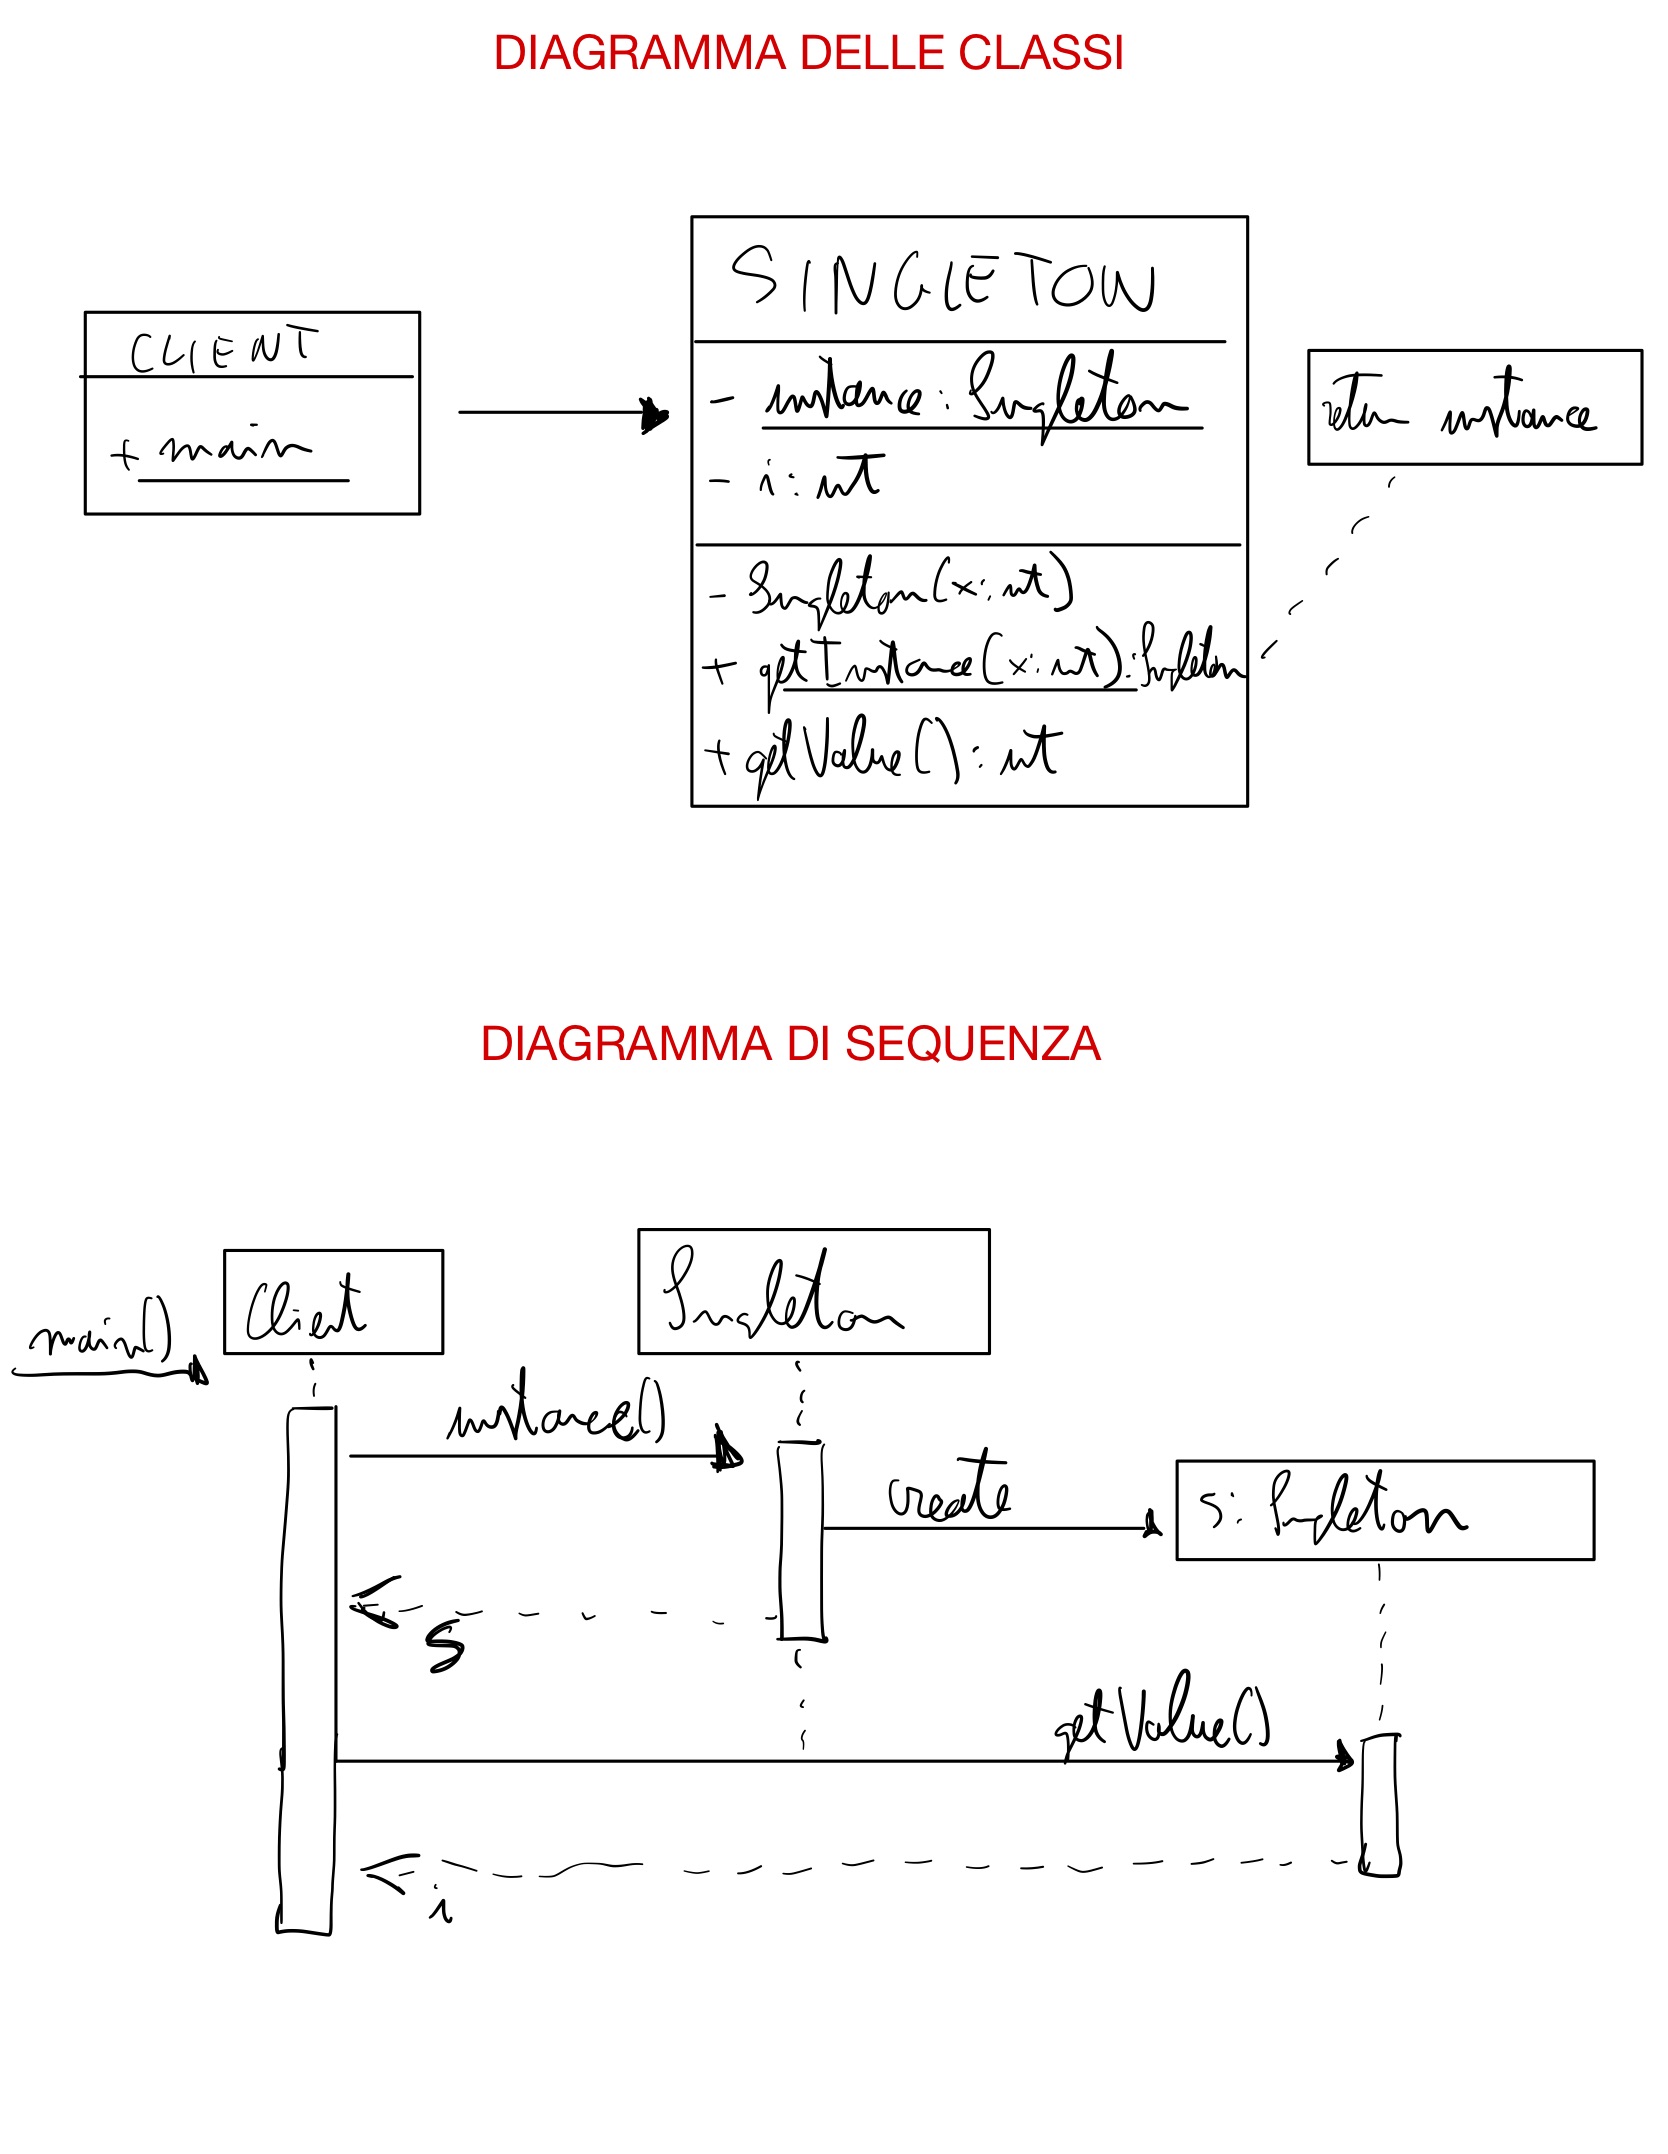 DIAGRAMMA DELLE CLASSI
CLIENT
+ main
SINGLETON
- instance : Singleton
- i : int
- Singleton(x: int)
+ getInstance(x: int): Singleton
+ getValue() : int
return instance
DIAGRAMMA DI SEQUENZA
main()
Client
Singleton
instance()
create
s: Singleton
s
getValue()
i